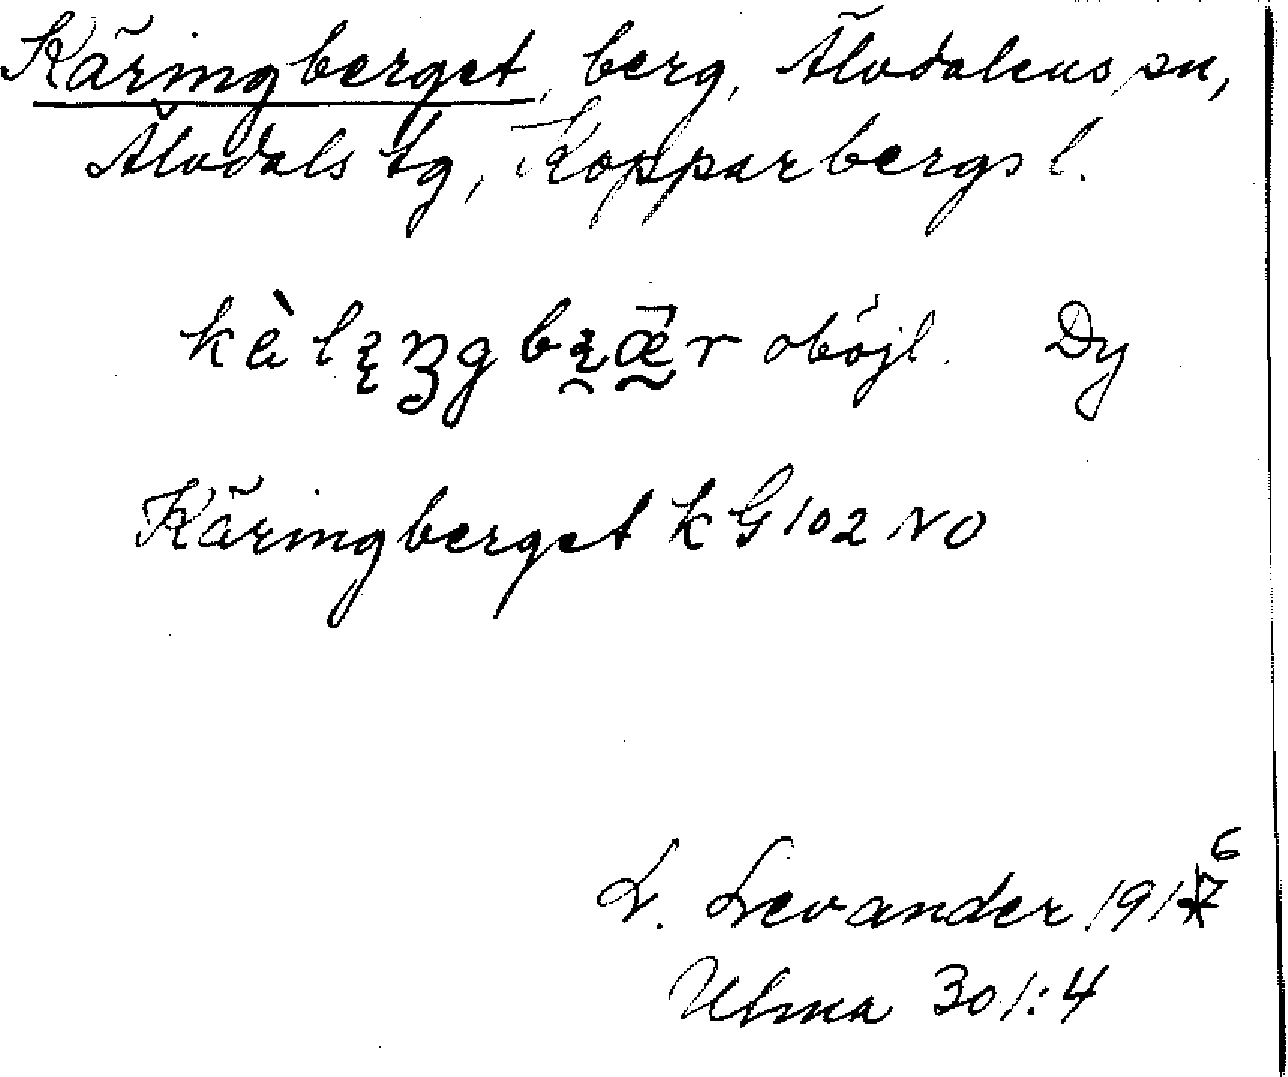 Käringberget, berg, Älvdalens sn,
Älvdals tg, Kopparbergs l.
oböjl. Dy
Käringberget k G 102 NO
L. Levander 1916
Ulma 301:4